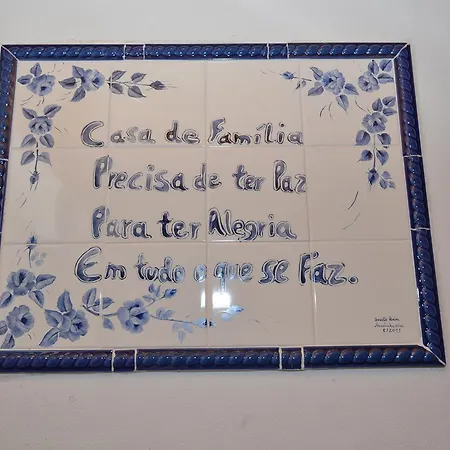 Casa de Família
Precisa de ter Paz
Para ter Alegria
Em tudo o que se Faz.